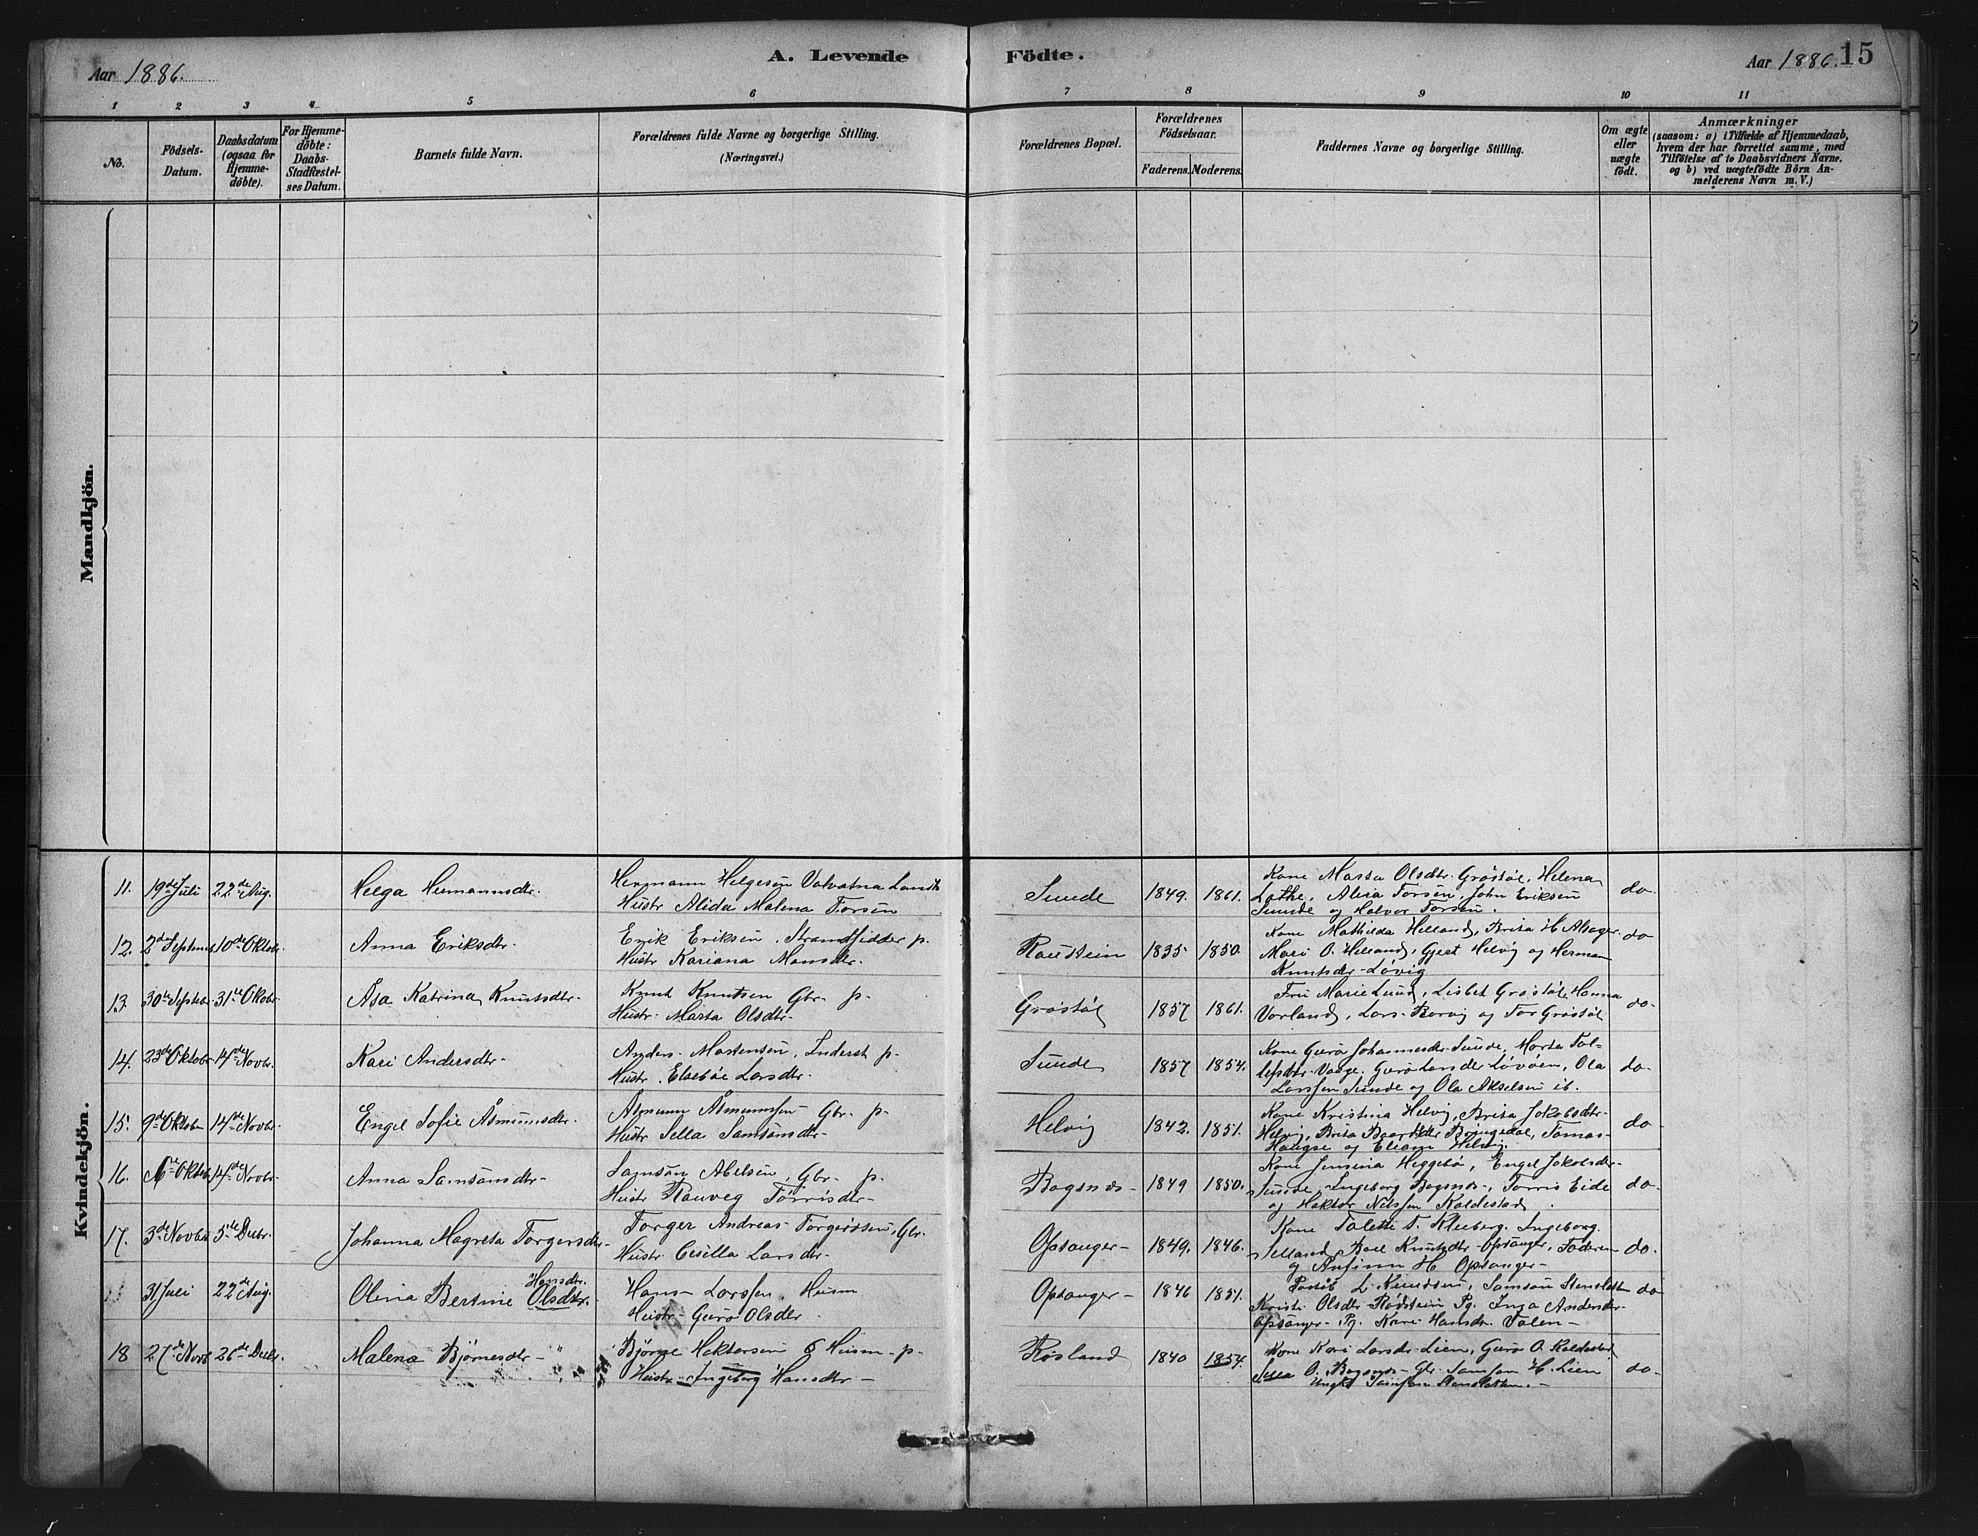 Aar 1886.
A. Levende Födte.
Aar 1886.
15
1 2 3 4 5 6 7 8 9 10 11
No.
Födsels-Datum.
Daabsdatum (ogsaa for Hjemme-döbte).
For Hjemme-döbte: Daabs-Stadfæstel-ses Datum.
Barnets fulde Navn.
Forældrenes fulde Navne og borgerlige Stilling. (Næringsvei.)
Forældrenes Bopæl.
Forældrenes Födselsaar.
Faderens. Moderens.
Faddernes Navne og borgerlige Stilling.
Om ægte eller uægte födt.
Anmærkninger
(saasom: a) i Tilfælde af Hjemmedaab,
hvem der har forrettet samme, med
Tilföielse af to Daabsvidners Navne.
og b) ved uægtefödte Börn An-
melderens Navn m. V.)
Mandkjön.
Kvindekjön.
11. 19de Juli 22de Aug. Helga Hermannsdtr.
Hermann Helgesen Valvatna
Hustr Alida Malena Torsen
Sunde 1849. 1861.
Kone Marta Olsdtr. Gröstöl, Helena
Lothe, Alida Torsen, John Eriksen
Sunde og Halvor Torsen.
do-
12. 2de Septemb 10de Oktobr. Anna Eriksdtr.
Erik Eriksen, Strandsidder p.
Hustr Kariana Monsdtr.
Raustein 1835- 1850.
Kone Mathilda Helland, Brita H.
Mari O. Helland, Gjert Helvig og Herman
Knutsdtr Lövig
do
13. 30te Septbr 31te Oktobr Åsa Katrina Knutsdtr-
Knut Knutsen Gbr- p-
Hustr- Marta Olsdtr-
Gröstöl 1857 1861.
Fru Marie Lund, Lisbet Gröstöl, Hanna
Vorland, Lars Borvig og Tor Gröstöl
do-
14. 23de Oktobr 14de Novbr. Kari Andersdtr-
Anders Mortensen, Inderst p-
Hustr. Elseböe Larsdtr.
Sunde 1857 1854.
Kone Guro Johannesdtr Sunde, Marta Tol-
Guro Larsdtr Lövåen, Ola
Larssen Sunde og Ola Akselsen ib.
do-
15. 9de Oktobr 14de Novbr. Engel Sofie Åsmunsdtr.
Asmunn Åsmunnsen Gbr- p-
Hustr Sella Samsonsdtr-
Helvig 1842. 1851.
Kone Kristina Helvig, Brita Jokobsdtr-
Helvig, Brita Baardsdtr Börsedal, Tomas
Haugse og Eliam Helvig
do-
16. Oktobr 14de Novbr- Anna Samsonsdtr-
Samson Abelsen, Gbr- p-
Hustr Rauveg Torrisdtr-
Bogsnes- 1849 1850.
Kone Jensina Heggebö, Engel Jokobsdtr-
Sunde, Ingeborg Bogsnes-, Torris Eide
og Haktor Nilssen Kaldestad
do-
17. 3de Novbr 5te Decbr. Johanna Magreta Torgersdtr-
Torger Andreas Torgerssen, Gbr.
Hustr Cesilla Larsdtr-
Opsanger- 1849. 1846.
Kone Talette T. Kleiberg. Ingeborg
Selland, Knutsdtr Opsanger, Faderen
og Anfinn H. Opsanger-
do-
31 Juli 22de Aug. Olina Bertine Hansdtr. Olsdtr.
Hans Larssen Husm
Hustr Guro Olsdtr
Opsanger- 1846 1851.
L. Knudsen, Samson Stensletten
Kristi Olsdtr Rödstein Pg. Inga Andersdtr-
Opsanger- Pg. Kari Hansdtr. Valen-
do
18 27de Novb 26de Decbr. Malena Björnesdtr-
Björne Haktorsen Husm- p-
Hustr- Ingeborg Hansdtr-
Rösland 1840 1854.
Kone Kari Larsdtr Lien, Guro O. Kaldestad
Sella O. Bogsnes- Gbr. Samson H. Lien
Ungkl Samson Stensletten.-
do-